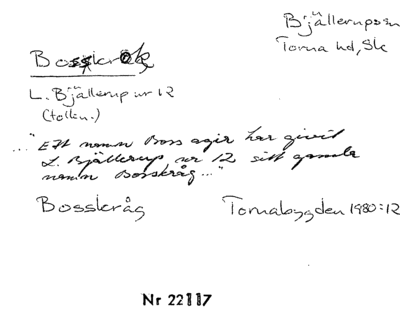 Bjällerups sn
Torna hd, Sk
Bosskrok
L. Bjällerup nr 12
(tolkn.)
..." Ett namn Boss ager har givit
L. Bjällerup nr 12 sitt gamla
namn Bosskråg..."
Bosskråg Tornabygden 1980:12
Nr 22117